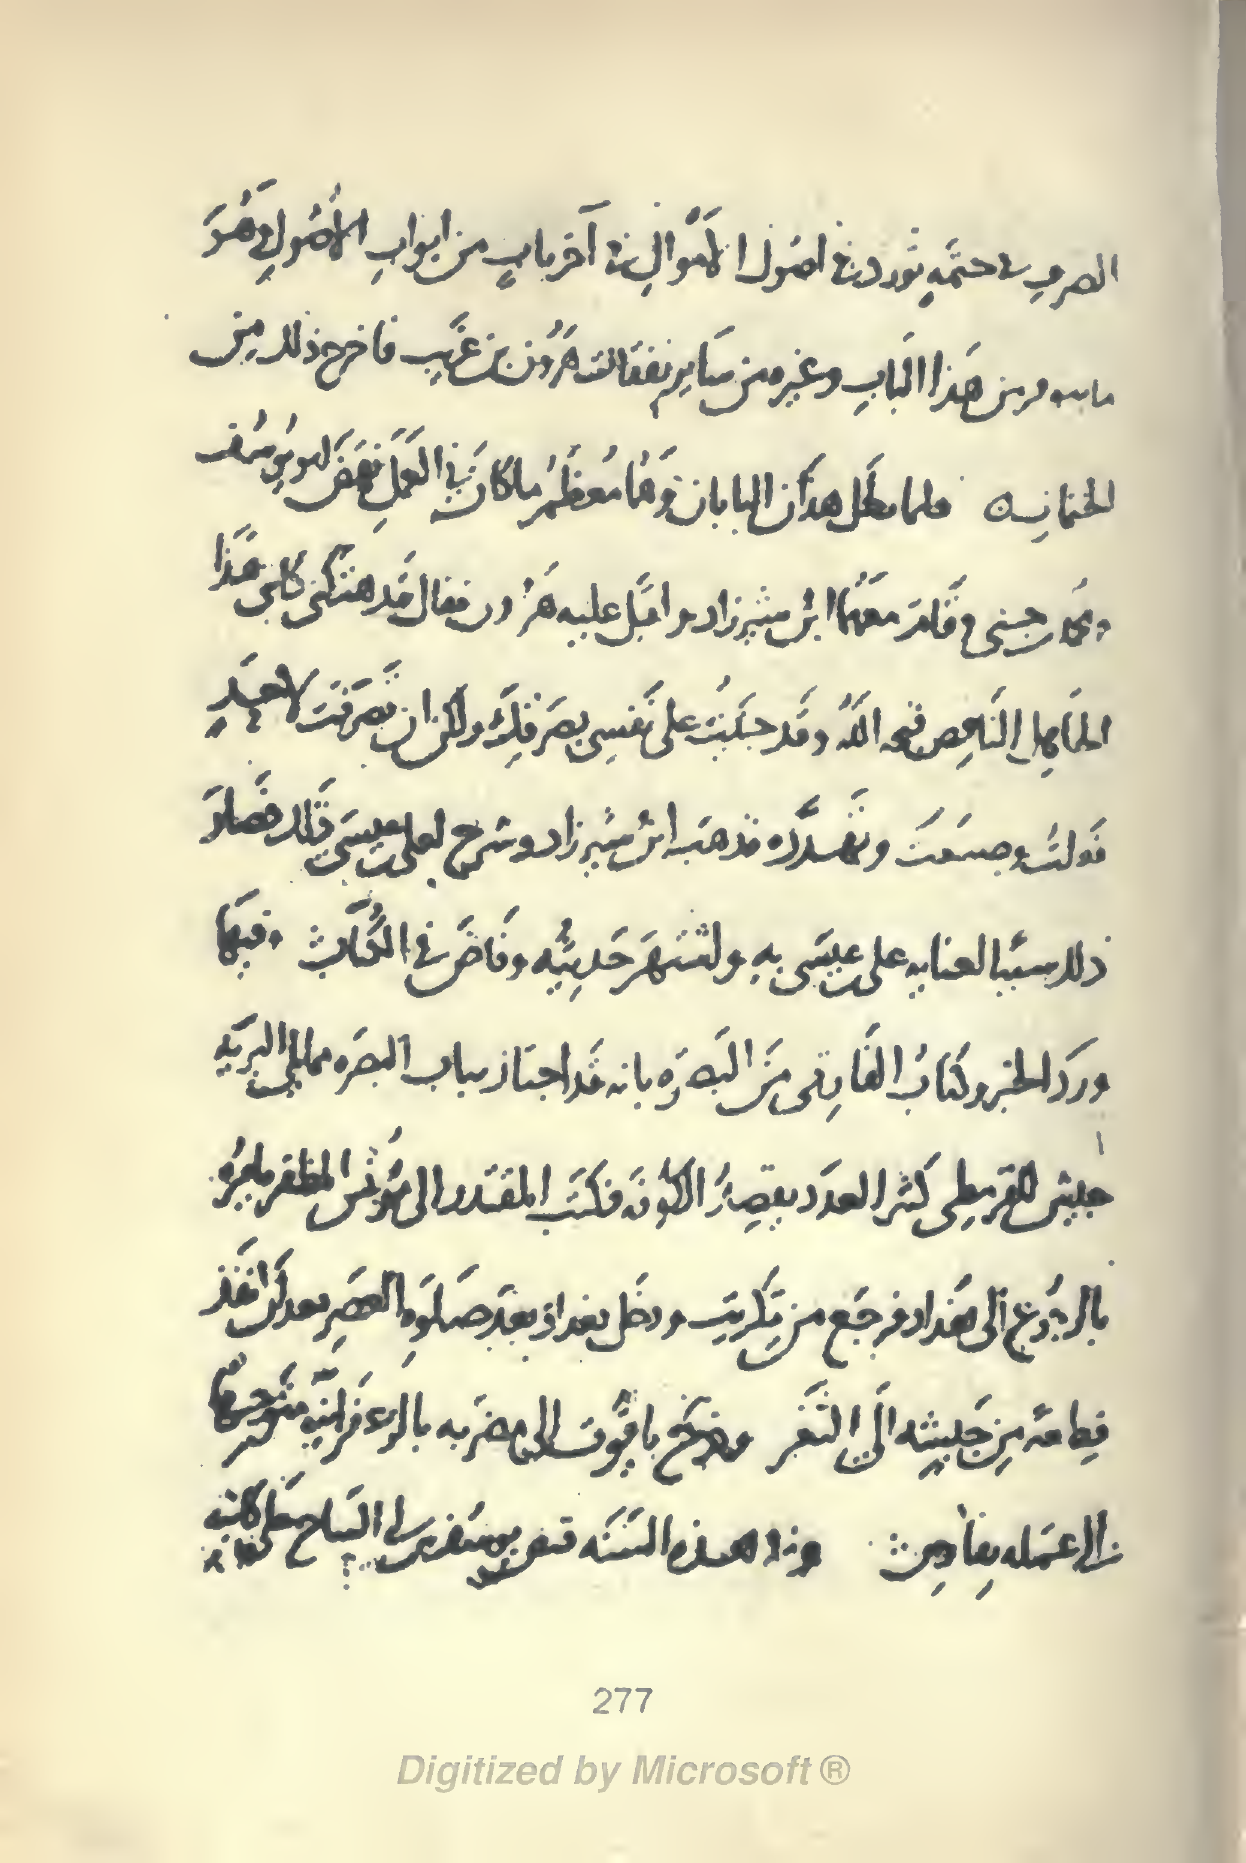 الصرف في ختمه تورد في اصول الاموال في آخر باب من ابواب الاصول وهو
من هذا الباب وغيره من ساير نفقات هرون بن غريب فاخرج ذلك من
فلما بطل هذان البابان وهما معظم ما كان في العمل نهض ابو يوسف
جنى وقام معهما ابن شيرزاد واقبل عليه هرون فقال قد هتكنى كاتبى هذا
الناقص قبحه الله وقد جنيت على نفسى بصرفك ولكن ان تصرفت لاحد
قولت وصنعت فذهب ابن شيرزاد وشرح لعلى بن عيسى ذلك فصار
ذلك سببا لعناية على بن عيسى به واشتهر حديثه وفاض في الكتاب وفيها
ورد الخبر وكتاب الفارقى من البصره بانه قد اجتاز بباب البصره مما يلى البريه
جيش للقرمطى كثير العدد يقصد الكوفه فكتب المقتدر الى مونس المظفر يامره
بالرجوع الى بغداد فرجع من تكريت ودخل بغداد بعد صلوه العصر بعد ان انفذ
قطعه من جيشه الى الثغر وخرج ياقوت الى مضربه بالزعفرانيه متوجها
الى عمله بفارس وفي هذه السنه قبض يوسف بن ابى الساج على كاتبه
277
Digitized by Microsoft ®